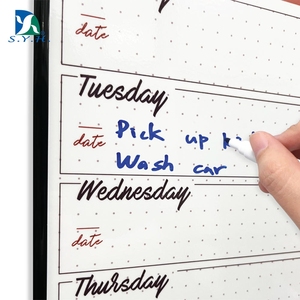 S.Y.H.
date
Tuesday
date
Pick up
Wash car
Wednesday
date
Thursday